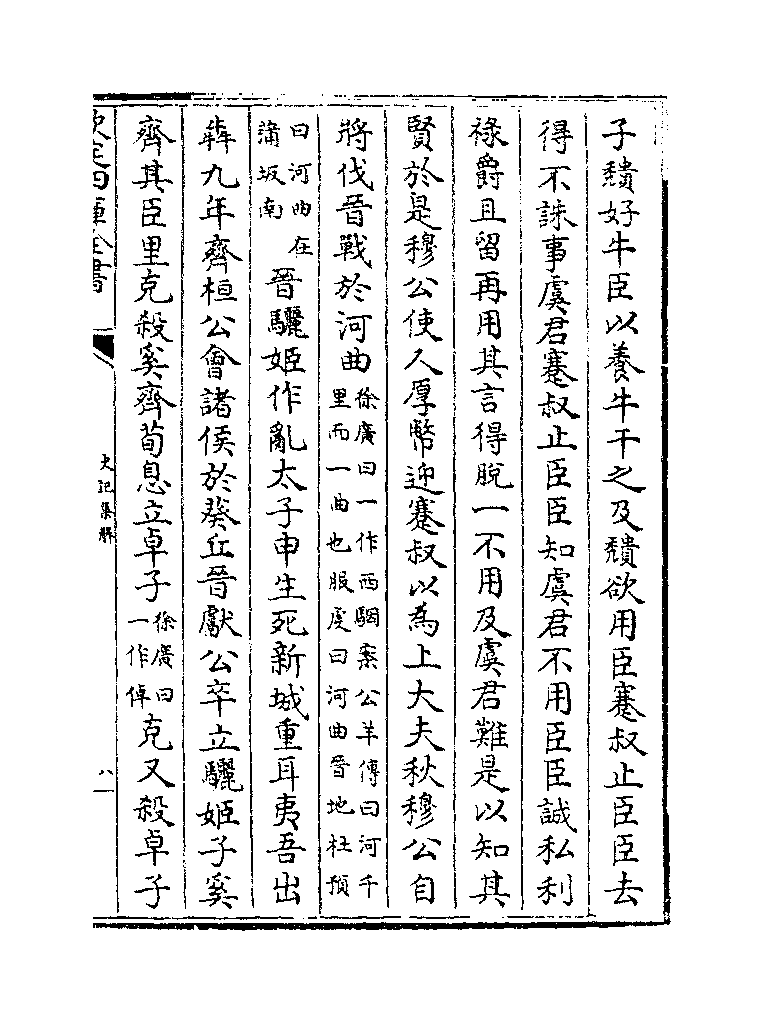 子頽好牛臣以養牛干之及頽欲用臣蹇叔止臣臣去
得不誅事虞君蹇叔止臣臣知虞君不用臣臣誠私利
祿爵且留再用其言得脫一不用及虞君難是以知其
賢於是穆公使人厚幣迎蹇叔以為上大夫秋穆公自
將伐晉戰於河曲徐廣曰一作西駰案公羊傳曰河千里而一曲也服虔曰河曲晉地杜預
曰河曲在蒲坂南晉驪姬作亂太子申生死新城重耳夷吾出
犇九年齊桓公會諸侯於葵丘晉獻公卒立驪姬子奚
齊其臣里克殺奚齊荀息立卓子徐廣曰一作倬克又殺卓子
欽定四庫全書
史記集解
八